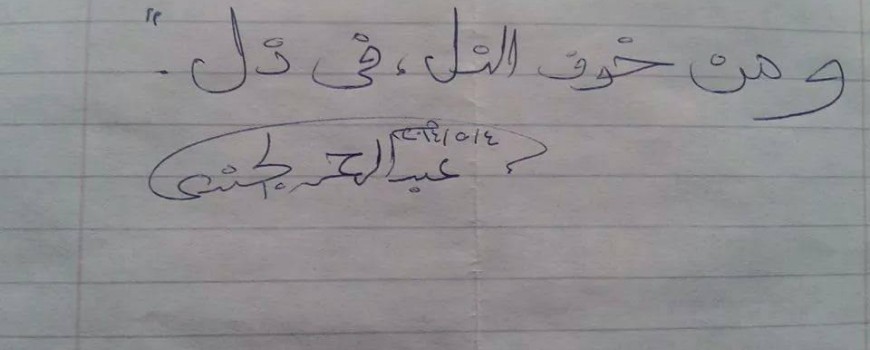 ومن خوف الذل، في ذل."
٢٠١٤/٥/٤
عبد الرحمن